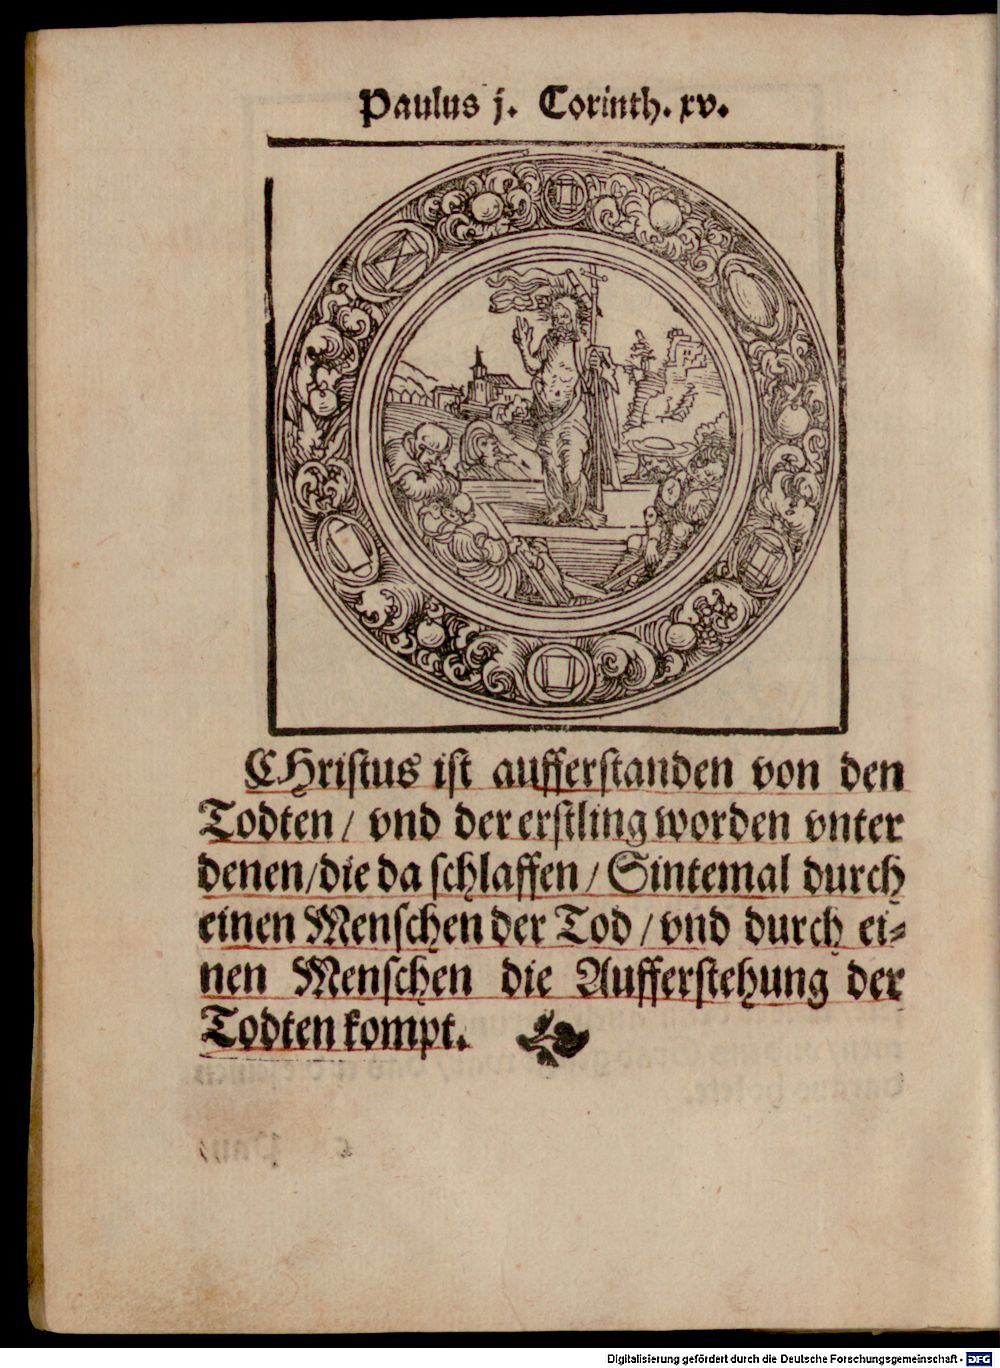 Paulus j. Corinth. xv.
CHristus ist aufferstanden von den
Todten / vnd der erstling worden vnter
denen / die da schlaffen / Sintemal durch
einen Menschen der Tod / vnd durch ei⸗
nen Menschen die Aufferstehung der
Todten kompt.
Digitalisierung gefördert durch die Deutsche Forschungsgemeinschaft - DFG